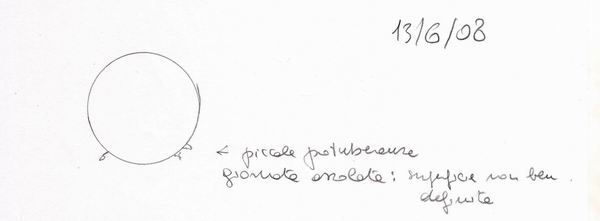 13/6/08
← piccole protuberanze
giornata assolata: superficie non ben
definita